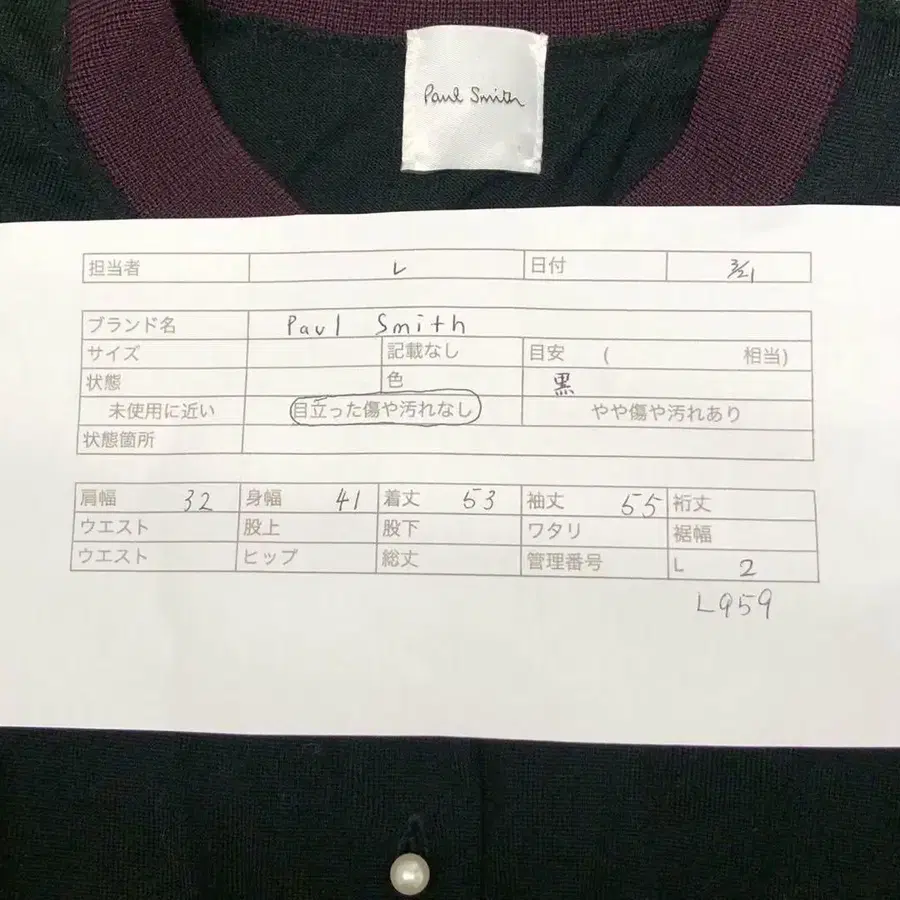 Paul Smith
担当者 L 日付 3/21
ブランド名 Paul Smith
サイズ 記載なし 目安 ( 相当)
状態 色 黒
未使用に近い 目立った傷や汚れなし やや傷や汚れあり
状態箇所
肩幅 32 身幅 41 着丈 53 袖丈 55 裄丈
ウエスト 股上 股下 ワタリ 裾幅
ウエスト ヒップ 総丈 管理番号 L 2
L959